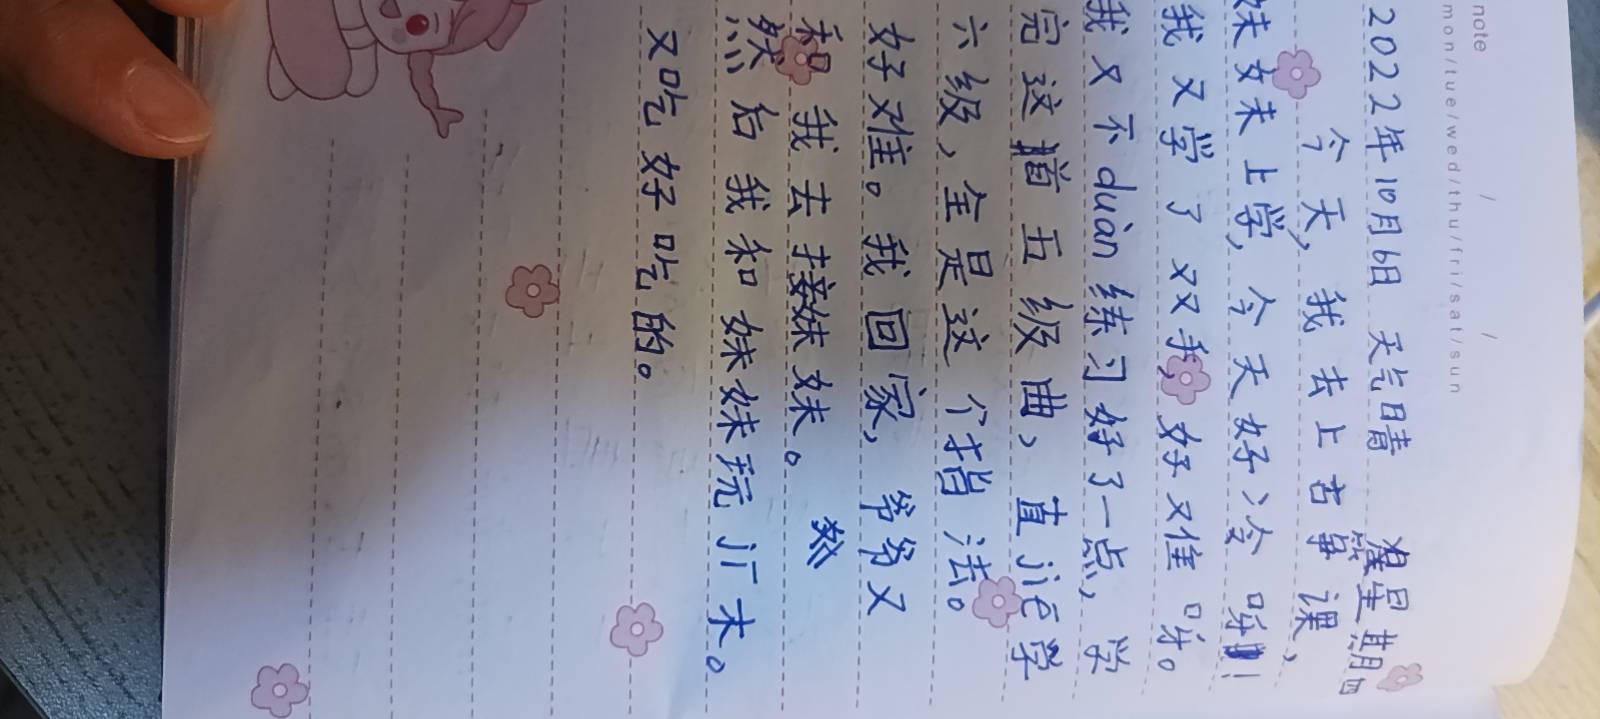 note
mon/tue/wed/thu/fri/sat/sun
2022年10月6日 天气晴 星期四
今天，我去上古筝课，
妹妹上学，今天好冷呀！
我又学了双手，好难呀。
我又不duàn练习好了一点，学
完这首五级曲，直jiē学
六级，全是这个指法。
好难。我回家，爷爷又
和我去接妹妹。
然后我和妹妹玩jī木。
又吃好吃的。